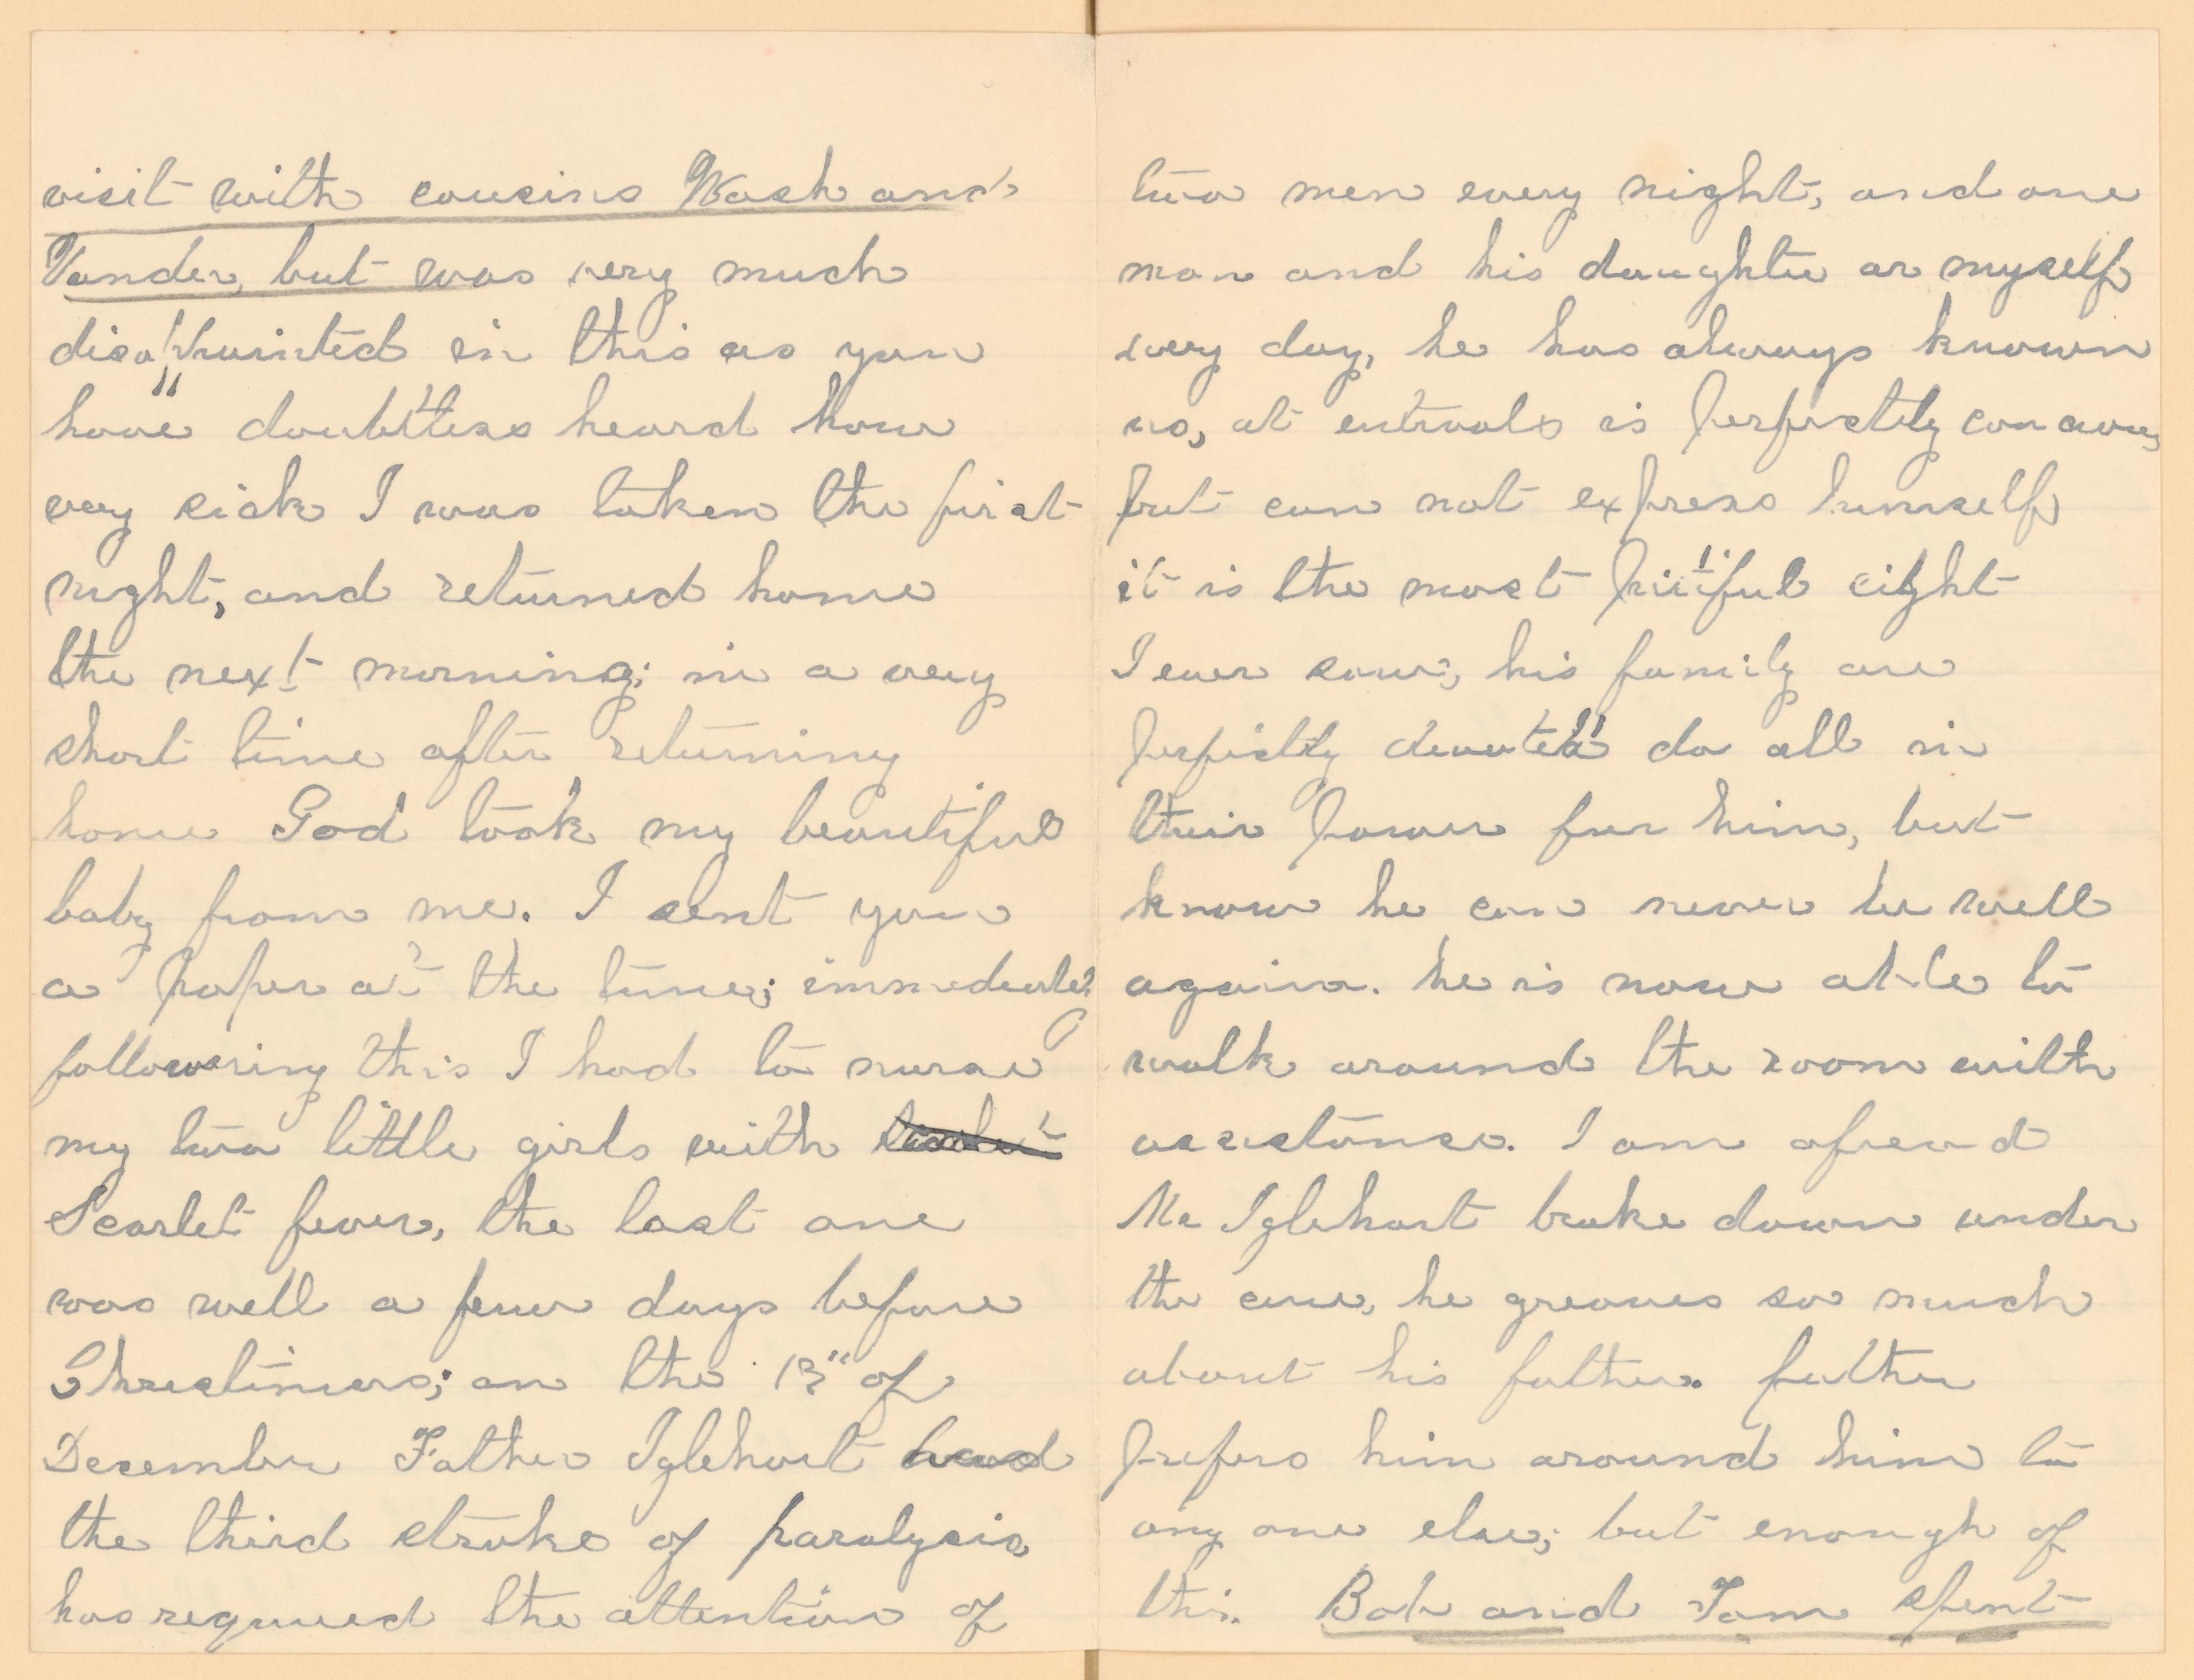 visit with cousins Wash and
Vander, but was very much
disappointed in this as you
have doubtless heard how
very sick I was taken the first
night, and returned home
the next morning; in a very
short time after returning
home God took my beautiful
baby from me. I sent you
a paper at the time;
following this I had to nurse
my two little girls with
Scarlet fever, the last one
was well a few days before
Christimas; on the of
December Father Iglehart had
the third stroke of paralysis,
has required the attention of
two men every night, and one
man and his daughter or myself
every day, he has always known
us, at entrvals is perfectly
but can not express himself
it is the most pitiful sight
I ever saw, his family are
perfectly devoted do all in
their power for him, but
know he can never be well
again. he is now able to
walk around the room with
assistanse. I am afread
Mr Iglehart brake down under
the care, he greaves so much
about his father. father
prefers him around him to
any one else; but enough of
this. Bob and Tom spent